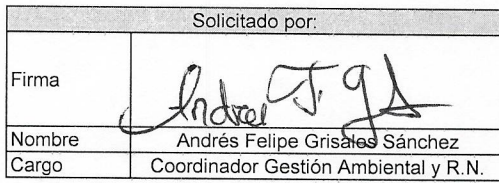 Solicitado por:
Firma
Andres F. G S
Nombre Andrés Felipe Grisales Sánchez
Cargo Coordinador Gestión Ambiental y R.N.